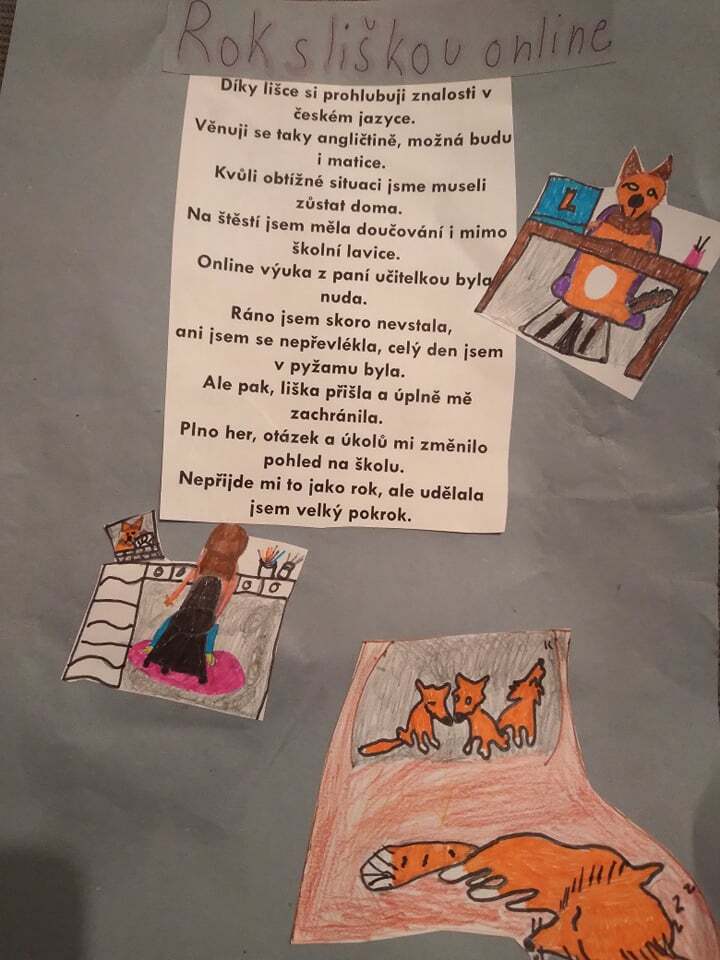 Rok s liškou online
Díky lišce si prohlubuji znalosti v
českém jazyce.
Věnuji se taky angličtině, možná budu
i matice.
Kvůli obtížné situaci jsme museli
zůstat doma.
Na štěstí jsem měla doučování i mimo
školní lavice.
Online výuka z paní učitelkou byla
nuda.
Ráno jsem skoro nevstala,
ani jsem se nepřevlékla, celý den jsem
v pyžamu byla.
Ale pak, liška přišla a úplně mě
zachránila.
Plno her, otázek a úkolů mi změnilo
pohled na školu.
Nepřijde mi to jako rok, ale udělala
jsem velký pokrok.
L
z z z